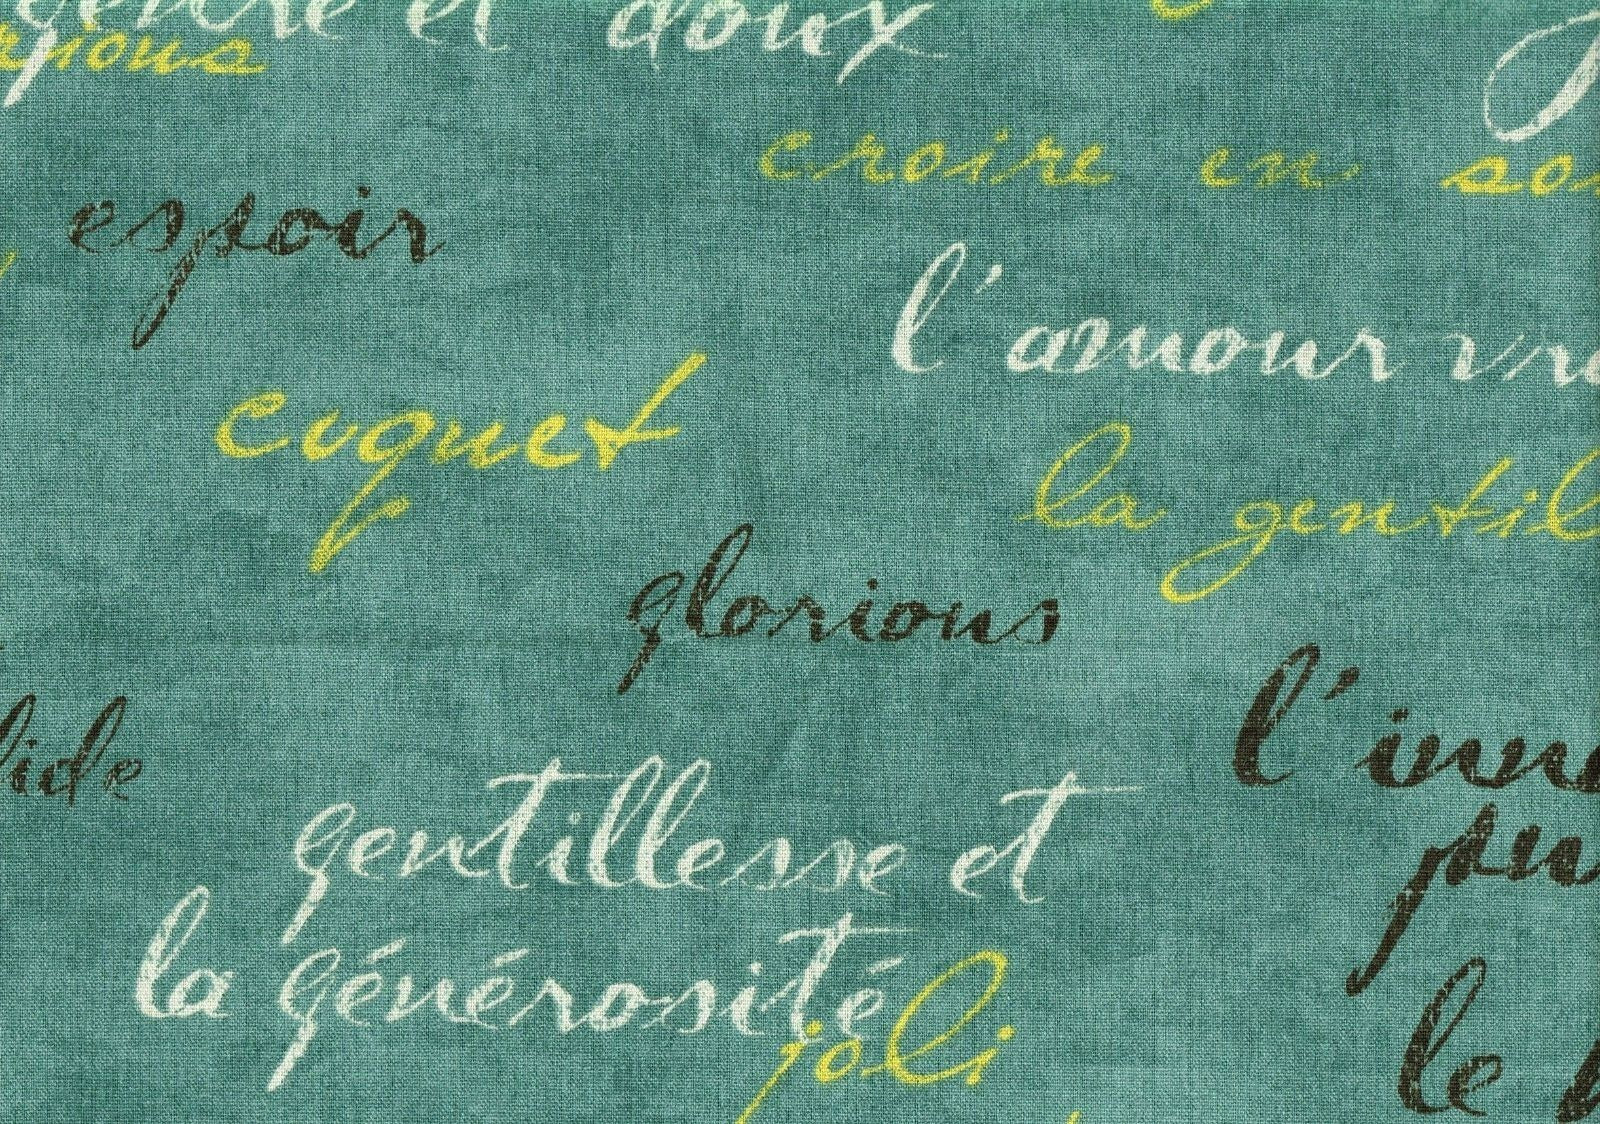 et doux
croire en
espoir
l'amour
coquet
la
glorious
gentillesse et
la générosité
joli
le